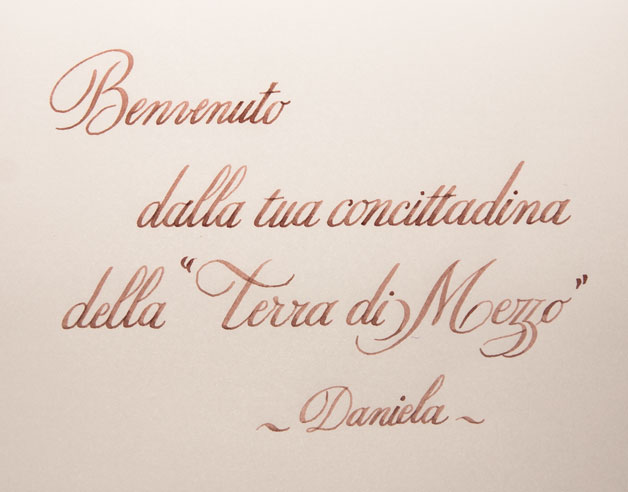 Benvenuto
dalla tua concittadina
della "Terra di Mezzo"
~ Daniela ~